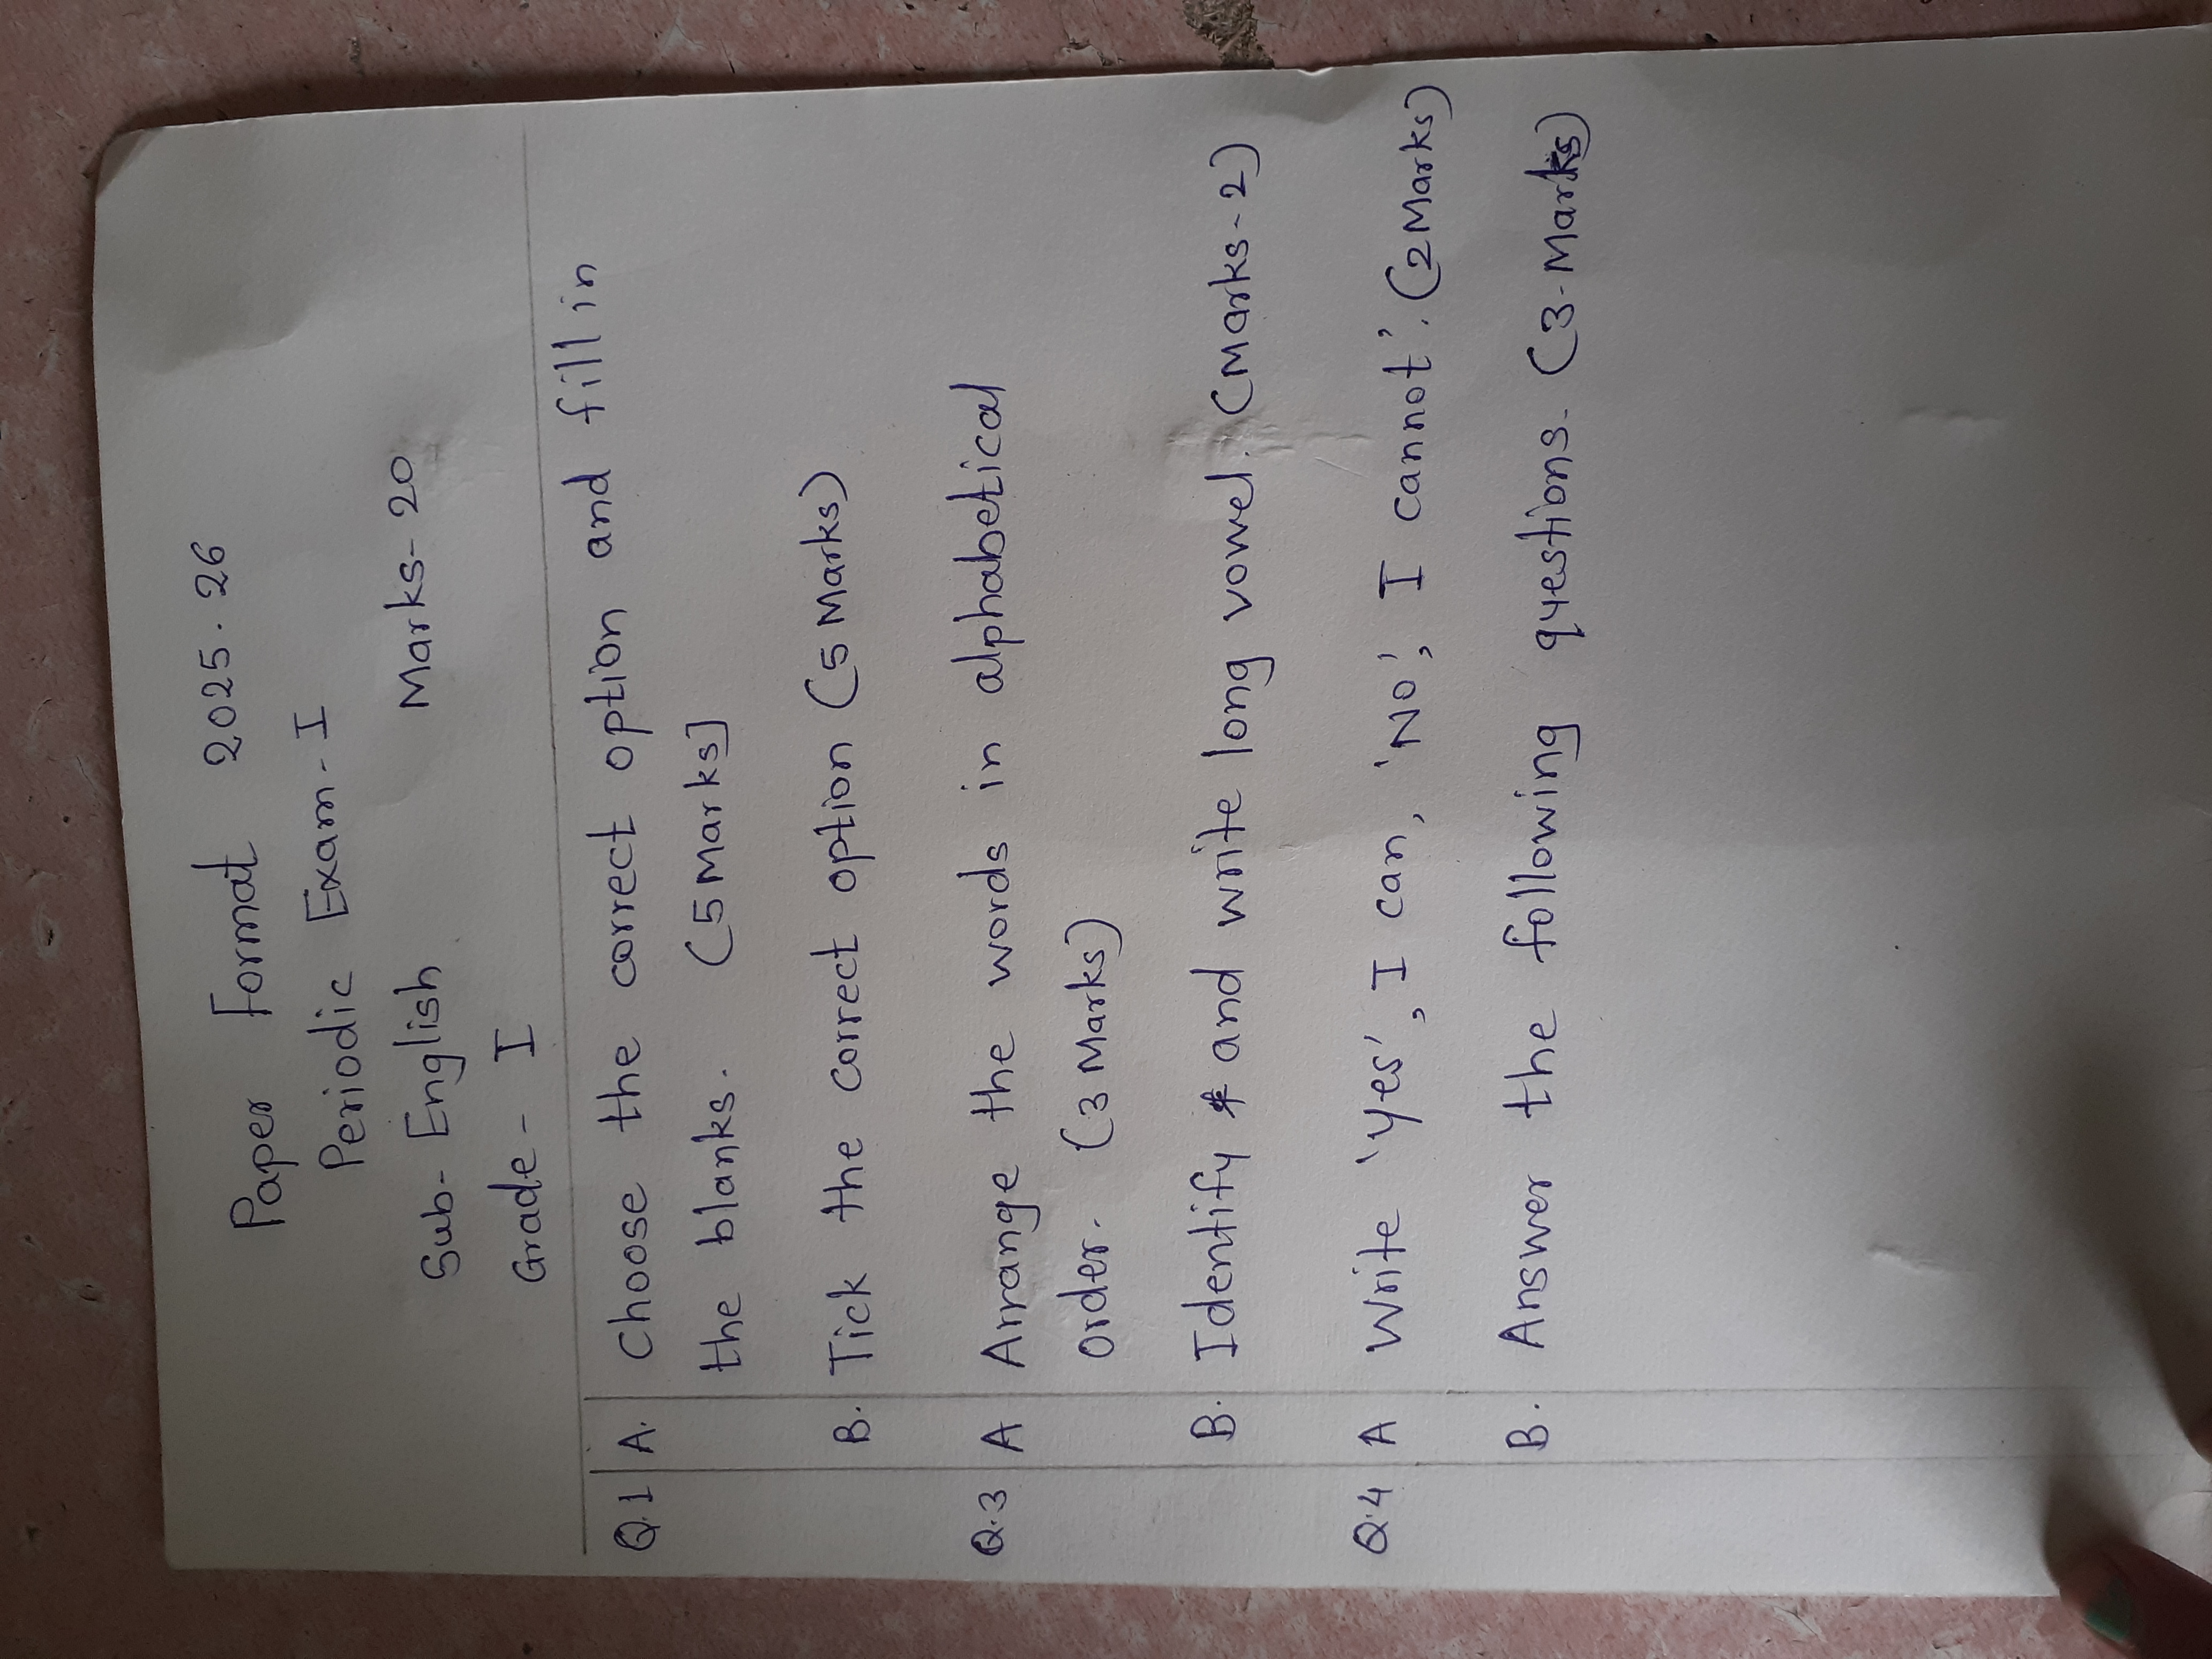 Paper Format 2025-26
Periodic Exam-I
Sub- English Marks-20
Grade- I
Q.1 A. Choose the correct option and fill in
the blanks. (5 Marks]
B. Tick the correct option (5 Marks)
Q.3 A Arrange the words in alphabetical
order. (3 Marks)
B. Identify and write long vowel. (Marks-2)
Q.4 A Write 'Yes', I can, 'No', I cannot'. (2 Marks)
B. Answer the following questions. (3-Marks)